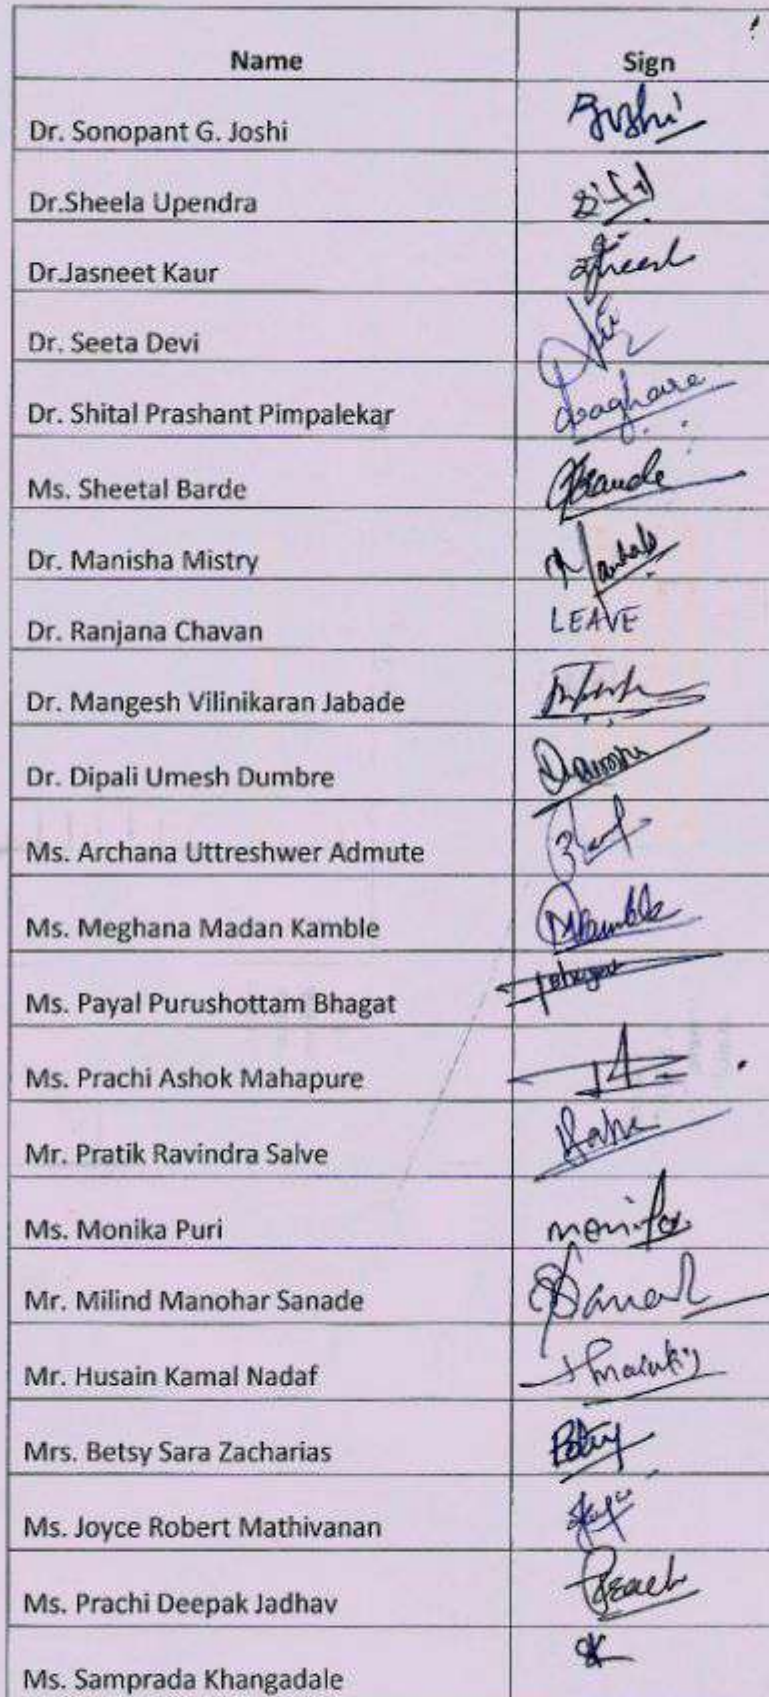 Name Sign
Dr. Sonopant G. Joshi Joshi
Dr.Sheela Upendra
Dr.Jasneet Kaur
Dr. Seeta Devi
Dr. Shital Prashant Pimpalekar Waghare
Ms. Sheetal Barde
Dr. Manisha Mistry
Dr. Ranjana Chavan LEAVE
Dr. Mangesh Vilinikaran Jabade
Dr. Dipali Umesh Dumbre
Ms. Archana Uttreshwer Admute
Ms. Meghana Madan Kamble MKamble
Ms. Payal Purushottam Bhagat
Ms. Prachi Ashok Mahapure
Mr. Pratik Ravindra Salve
Ms. Monika Puri Monika
Mr. Milind Manohar Sanade
Mr. Husain Kamal Nadaf
Mrs. Betsy Sara Zacharias Betsy
Ms. Joyce Robert Mathivanan
Ms. Prachi Deepak Jadhav Prachi
Ms. Samprada Khangadale SK